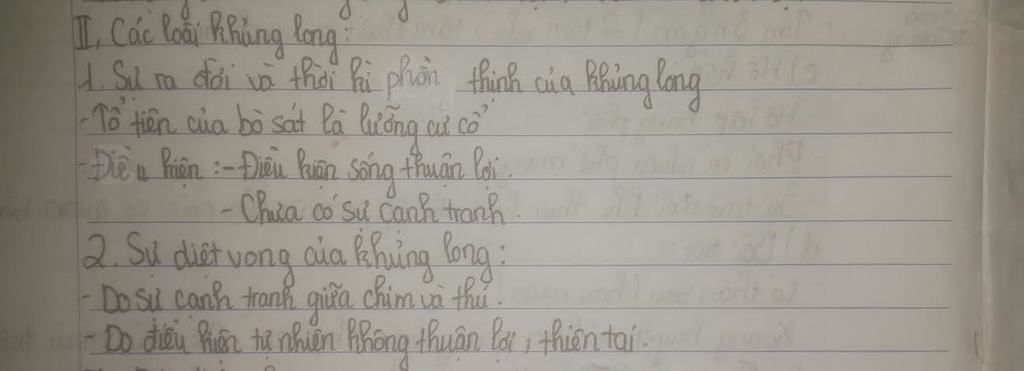 II, Các loài khủng long:
1. Sự ra đời và thời kì phồn thịnh của khủng long
- Tổ tiên của bò sát là lưỡng cư cổ
- Điều kiện: - Điều kiện sống thuận lợi.
- Chưa có sự cạnh tranh.
2. Sự diệt vong của khủng long:
- Do sự cạnh tranh giữa chim và thú.
- Do điều kiện tự nhiên không thuận lợi, thiên tai.